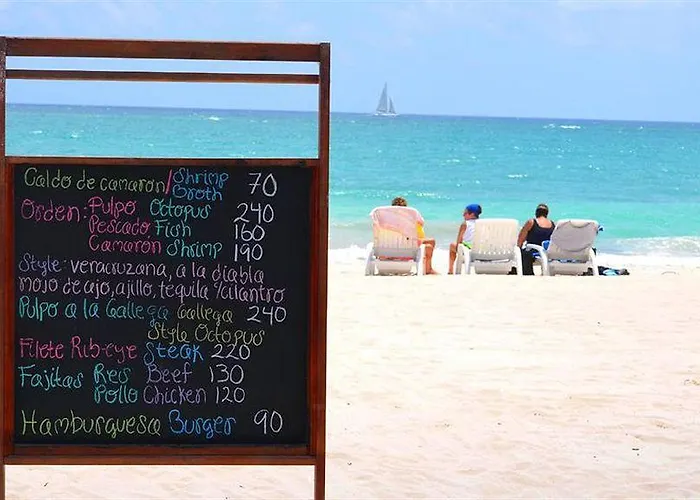 Caldo de camaron/Shrimp Broth 70
Orden: Pulpo Octopus 240
Pescado Fish 160
Camarón Shrimp 190
Style: veracruzana, a la diabla
mojo de ajo, ajillo, tequila y/cilantro
Pulpo a la Gallega Gallega 240
Style Octopus
Filete Rib-eye Steak 220
Fajitas Res Beef 130
Pollo Chicken 120
Hamburguesa Burger 90